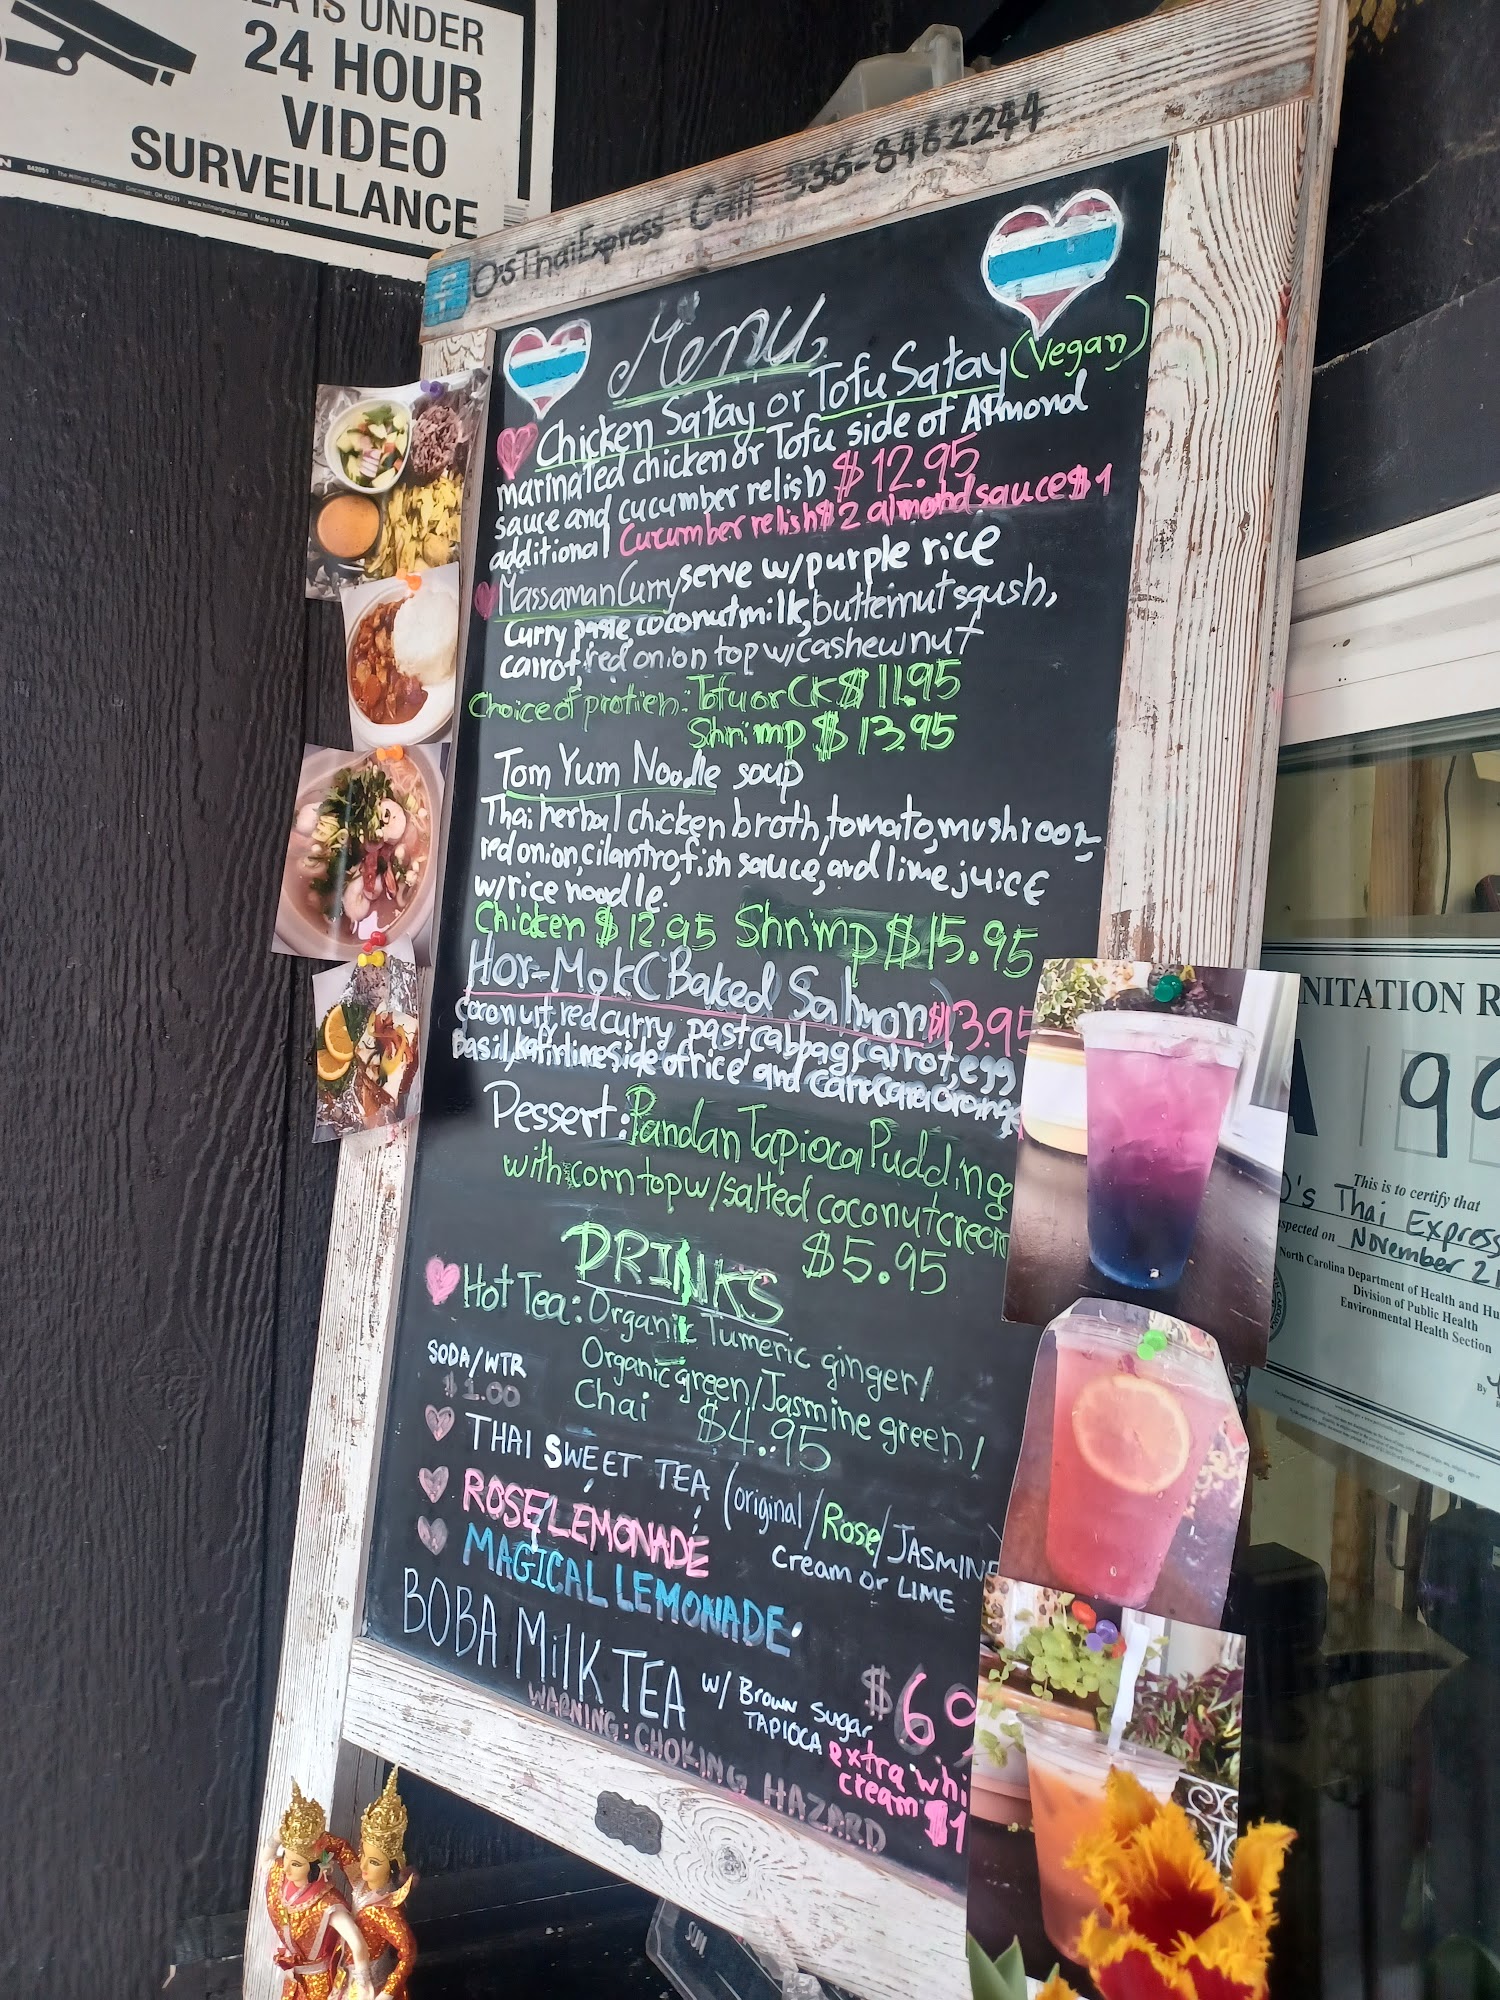 IS UNDER
24 HOUR
VIDEO
SURVEILLANCE
842051 The Hillman Group Inc. Cincinnati, OH 45231 www.hillmangroup.com Made in U.S.A
O'sThaiExpress Call 336-8462244
Menu
Chicken Satay or Tofu Satay (Vegan)
marinated chicken or Tofu side of Almond
sauce and cucumber relish $12.95
additional Cucumber relish $2 almond sauce $1
Massaman Curry serve w/purple rice
Curry paste, coconut milk, butternut sqush,
carrot, red onion top w/cashew nut
Choice of protien: Tofu or CK $11.95
Shrimp $13.95
Tom Yum Noodle soup
Thai herbal chicken broth, tomato, mushroom,
red onion, cilantro, fish sauce, and lime juice
w/rice noodle.
Chicken $12.95 Shrimp $15.95
Hor-Mok (Baked Salmon) $13.95
coconut red curry past cabbag, carrot, egg
Basil, kaffir lime side of rice and
Dessert: Pandan Tapioca Pudding
with corn top w/salted coconut cream
$5.95
DRINKS
Hot Tea: Organic Tumeric ginger/
Organic green/Jasmine green/
Chai $4.95
SODA/WTR
$1.00
THAI SWEET TEA (original/Rose/JASMINE
Cream or LIME
ROSE/LEMONADE
MAGICAL LEMONADE
BOBA MilK TEA w/ Brown Sugar
TAPIOCA
$6.9
extra whi
cream $1
WARNING: CHOKING HAZARD
NITATION R
A 9
This is to certify that
O's Thai Express
spected on November 21
North Carolina Department of Health and Hu
Division of Public Health
Environmental Health Section
By